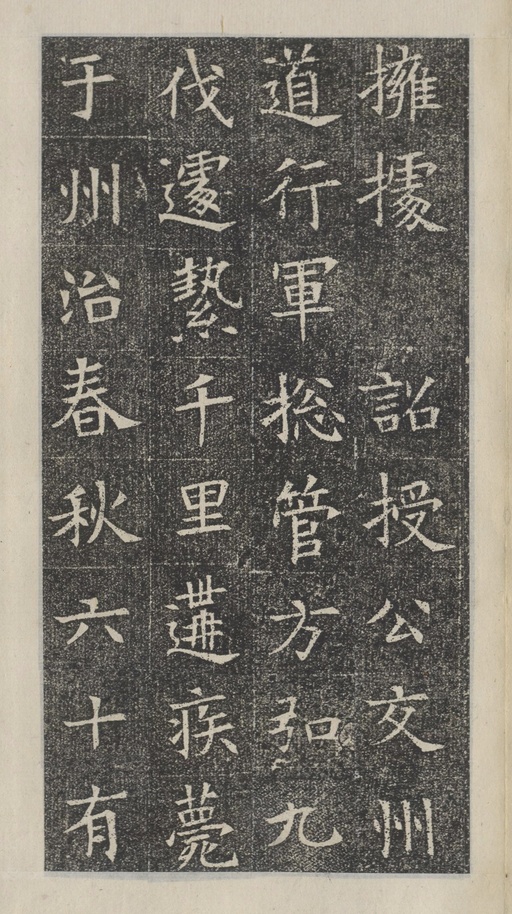 擁據 詔授公交州
道行軍揔管方弘九
伐遽縶千里遘疾薨
于州治春秋六十有